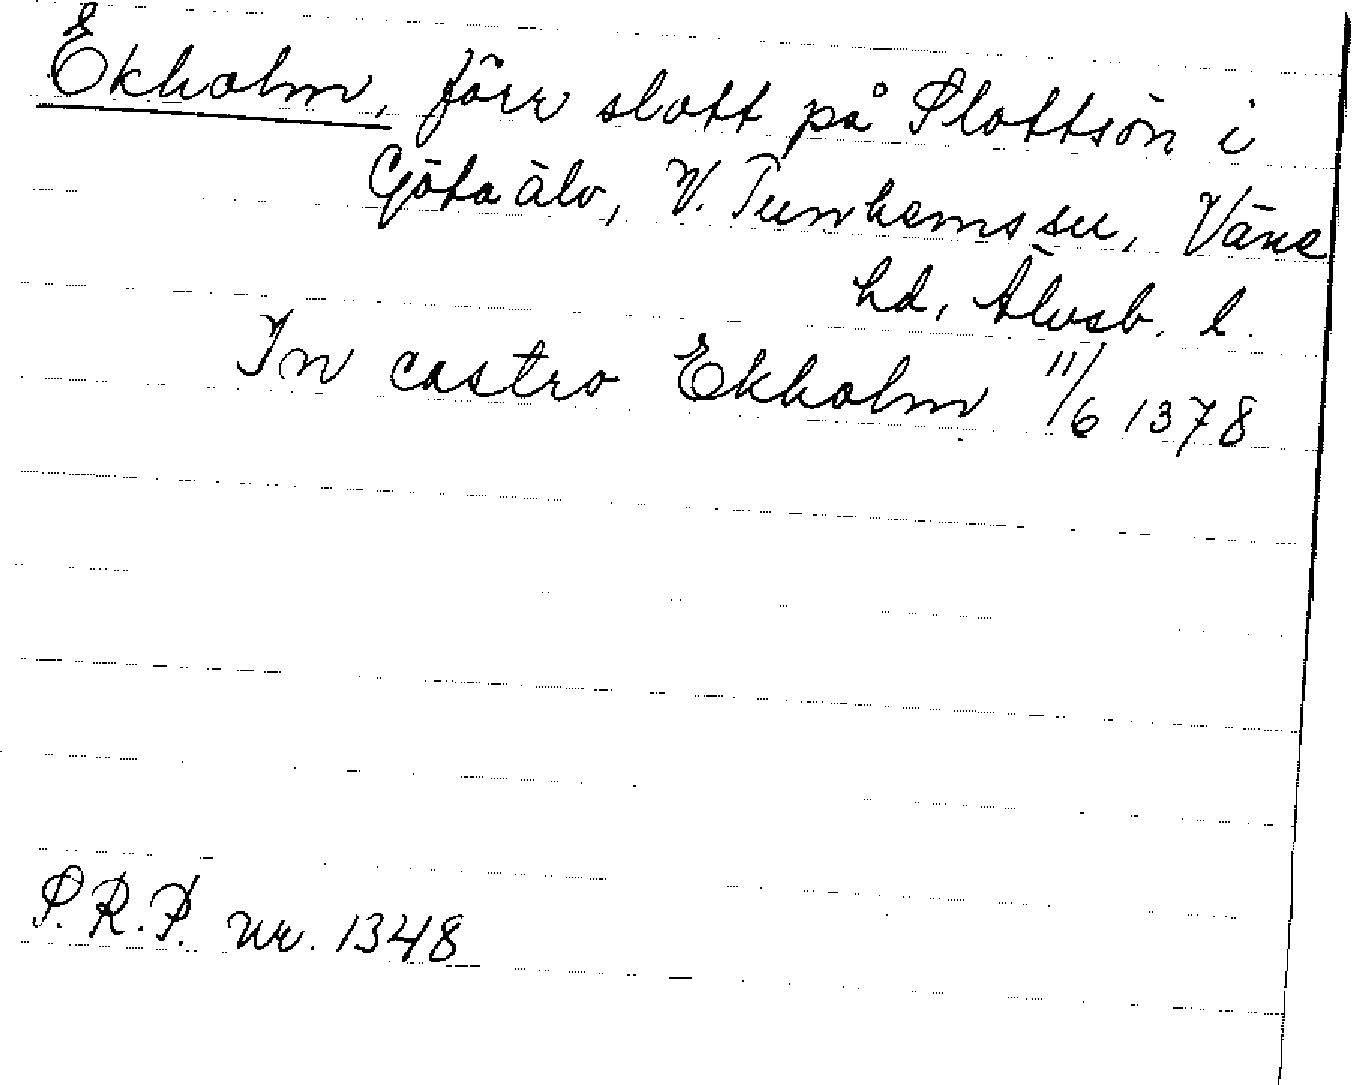 Ekholm, förr slott på Slottsön i
Göta älv, V. Tunhems sn, Väne
hd, Älvsb. l.
In castro Ekholm 11/6 1378
S.R.P. nr. 1348